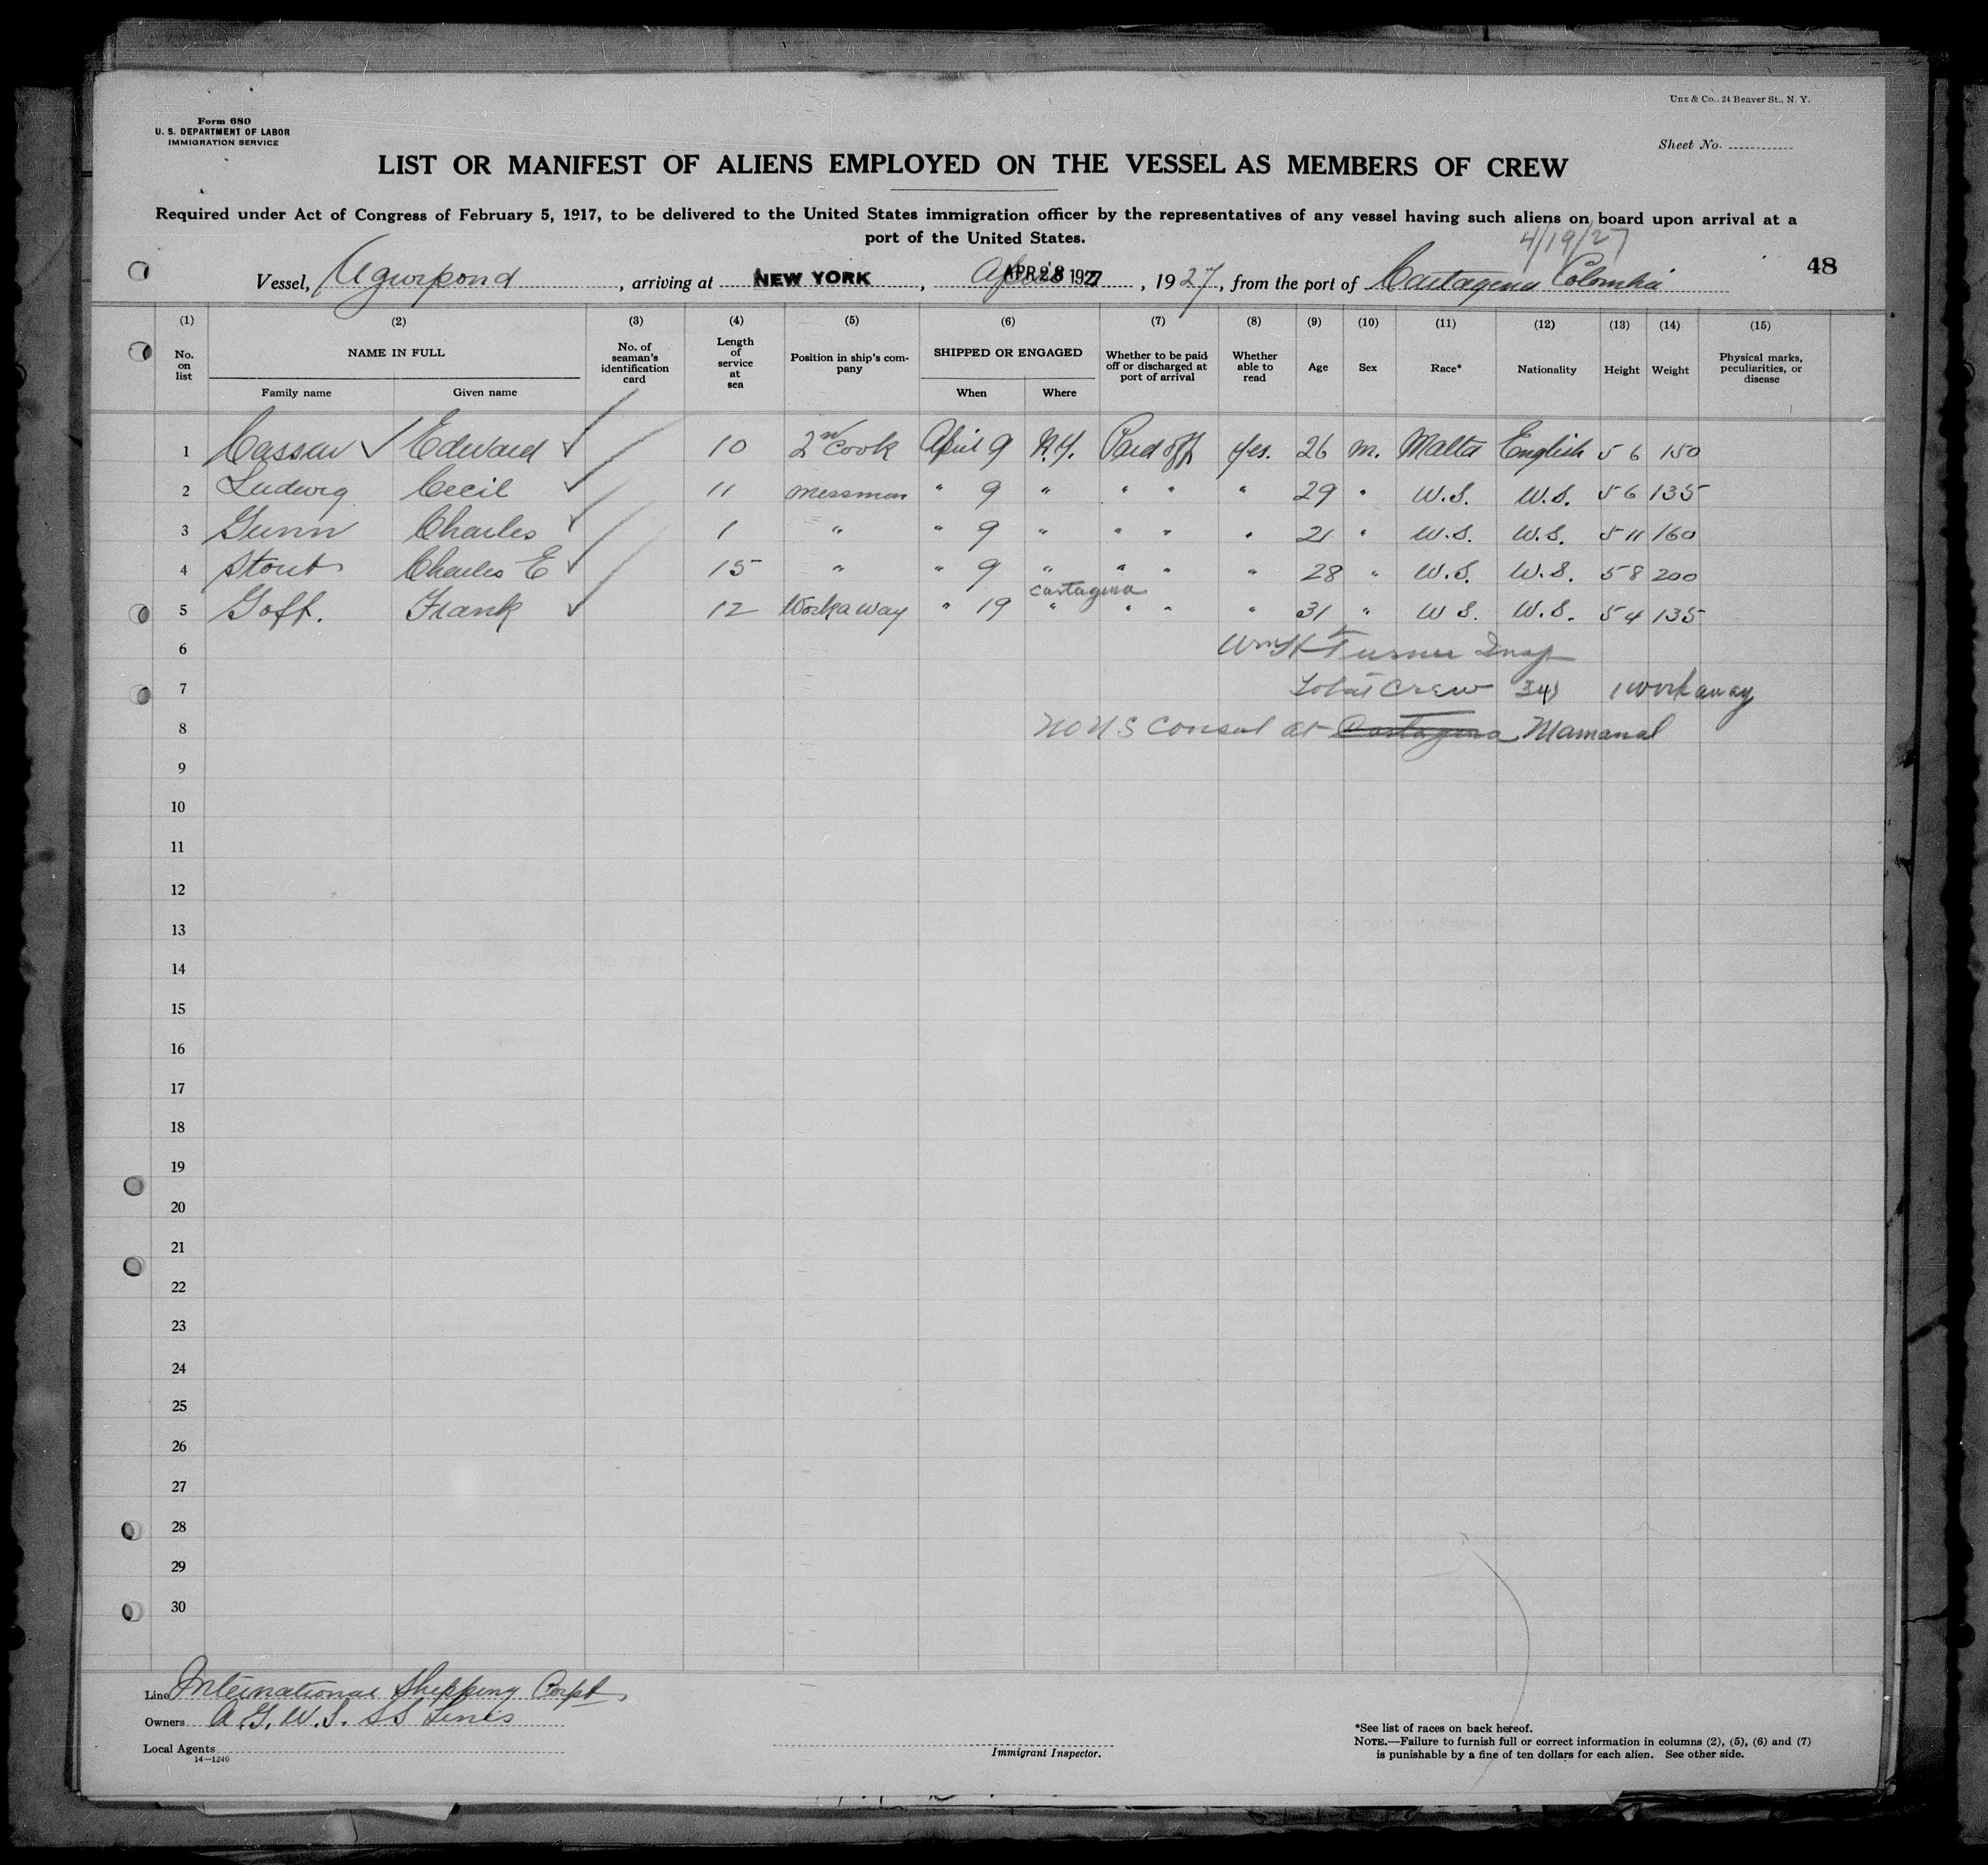 Unz & Co., 24 Beaver St., N. Y.
Form 680
U. S. DEPARTMENT OF LABOR
IMMIGRATION SERVICE
Sheet No.
LIST OR MANIFEST OF ALIENS EMPLOYED ON THE VESSEL AS MEMBERS OF CREW
Required under Act of Congress of February 5, 1917, to be delivered to the United States immigration officer by the representatives of any vessel having such aliens on board upon arrival at a
port of the United States.
4/19/27
48
Vessel, Agwipond, arriving at NEW YORK, APR 28 1927, 1927, from the port of Cartagena Colombia
(1) (2) (3) (4) (5) (6) (7) (8) (9) (10) (11) (12) (13) (14) (15)
No. on list NAME IN FULL No. of seaman's identification card Length of service at sea Position in ship's company SHIPPED OR ENGAGED Whether to be paid off or discharged at port of arrival Whether able to read Age Sex Race* Nationality Height Weight Physical marks, peculiarities, or disease
Family name Given name When Where
1 Cassar Edward 10 2nd Cook April 9 N.Y. Paid off yes. 26 m. Malta English 5 6 150
2 Ludwig Cecil 11 messman " 9 " " " " 29 " U.S. U.S. 5 6 135
3 Gunn Charles 1 " " 9 " " " " 21 " U.S. U.S. 5 11 160
4 Stout Charles E 15 " " 9 " " " " 28 " U.S. U.S. 5 8 200
5 Goff. Frank 12 Workaway " 19 Cartagena " " " " 31 " U S. U.S. 5 4 135
6 Turner Insp
7 Total Crew 34 1 workaway
8 No U S Consul at Cartagena Mamonal
9
10
11
12
13
14
15
16
17
18
19
20
21
22
23
24
25
26
27
28
29
30
Line International Shipping Corpt
Owners A.G.W.I. SS Lines
Local Agents
14—1240
Immigrant Inspector.
*See list of races on back hereof.
NOTE.—Failure to furnish full or correct information in columns (2), (5), (6) and (7)
is punishable by a fine of ten dollars for each alien. See other side.